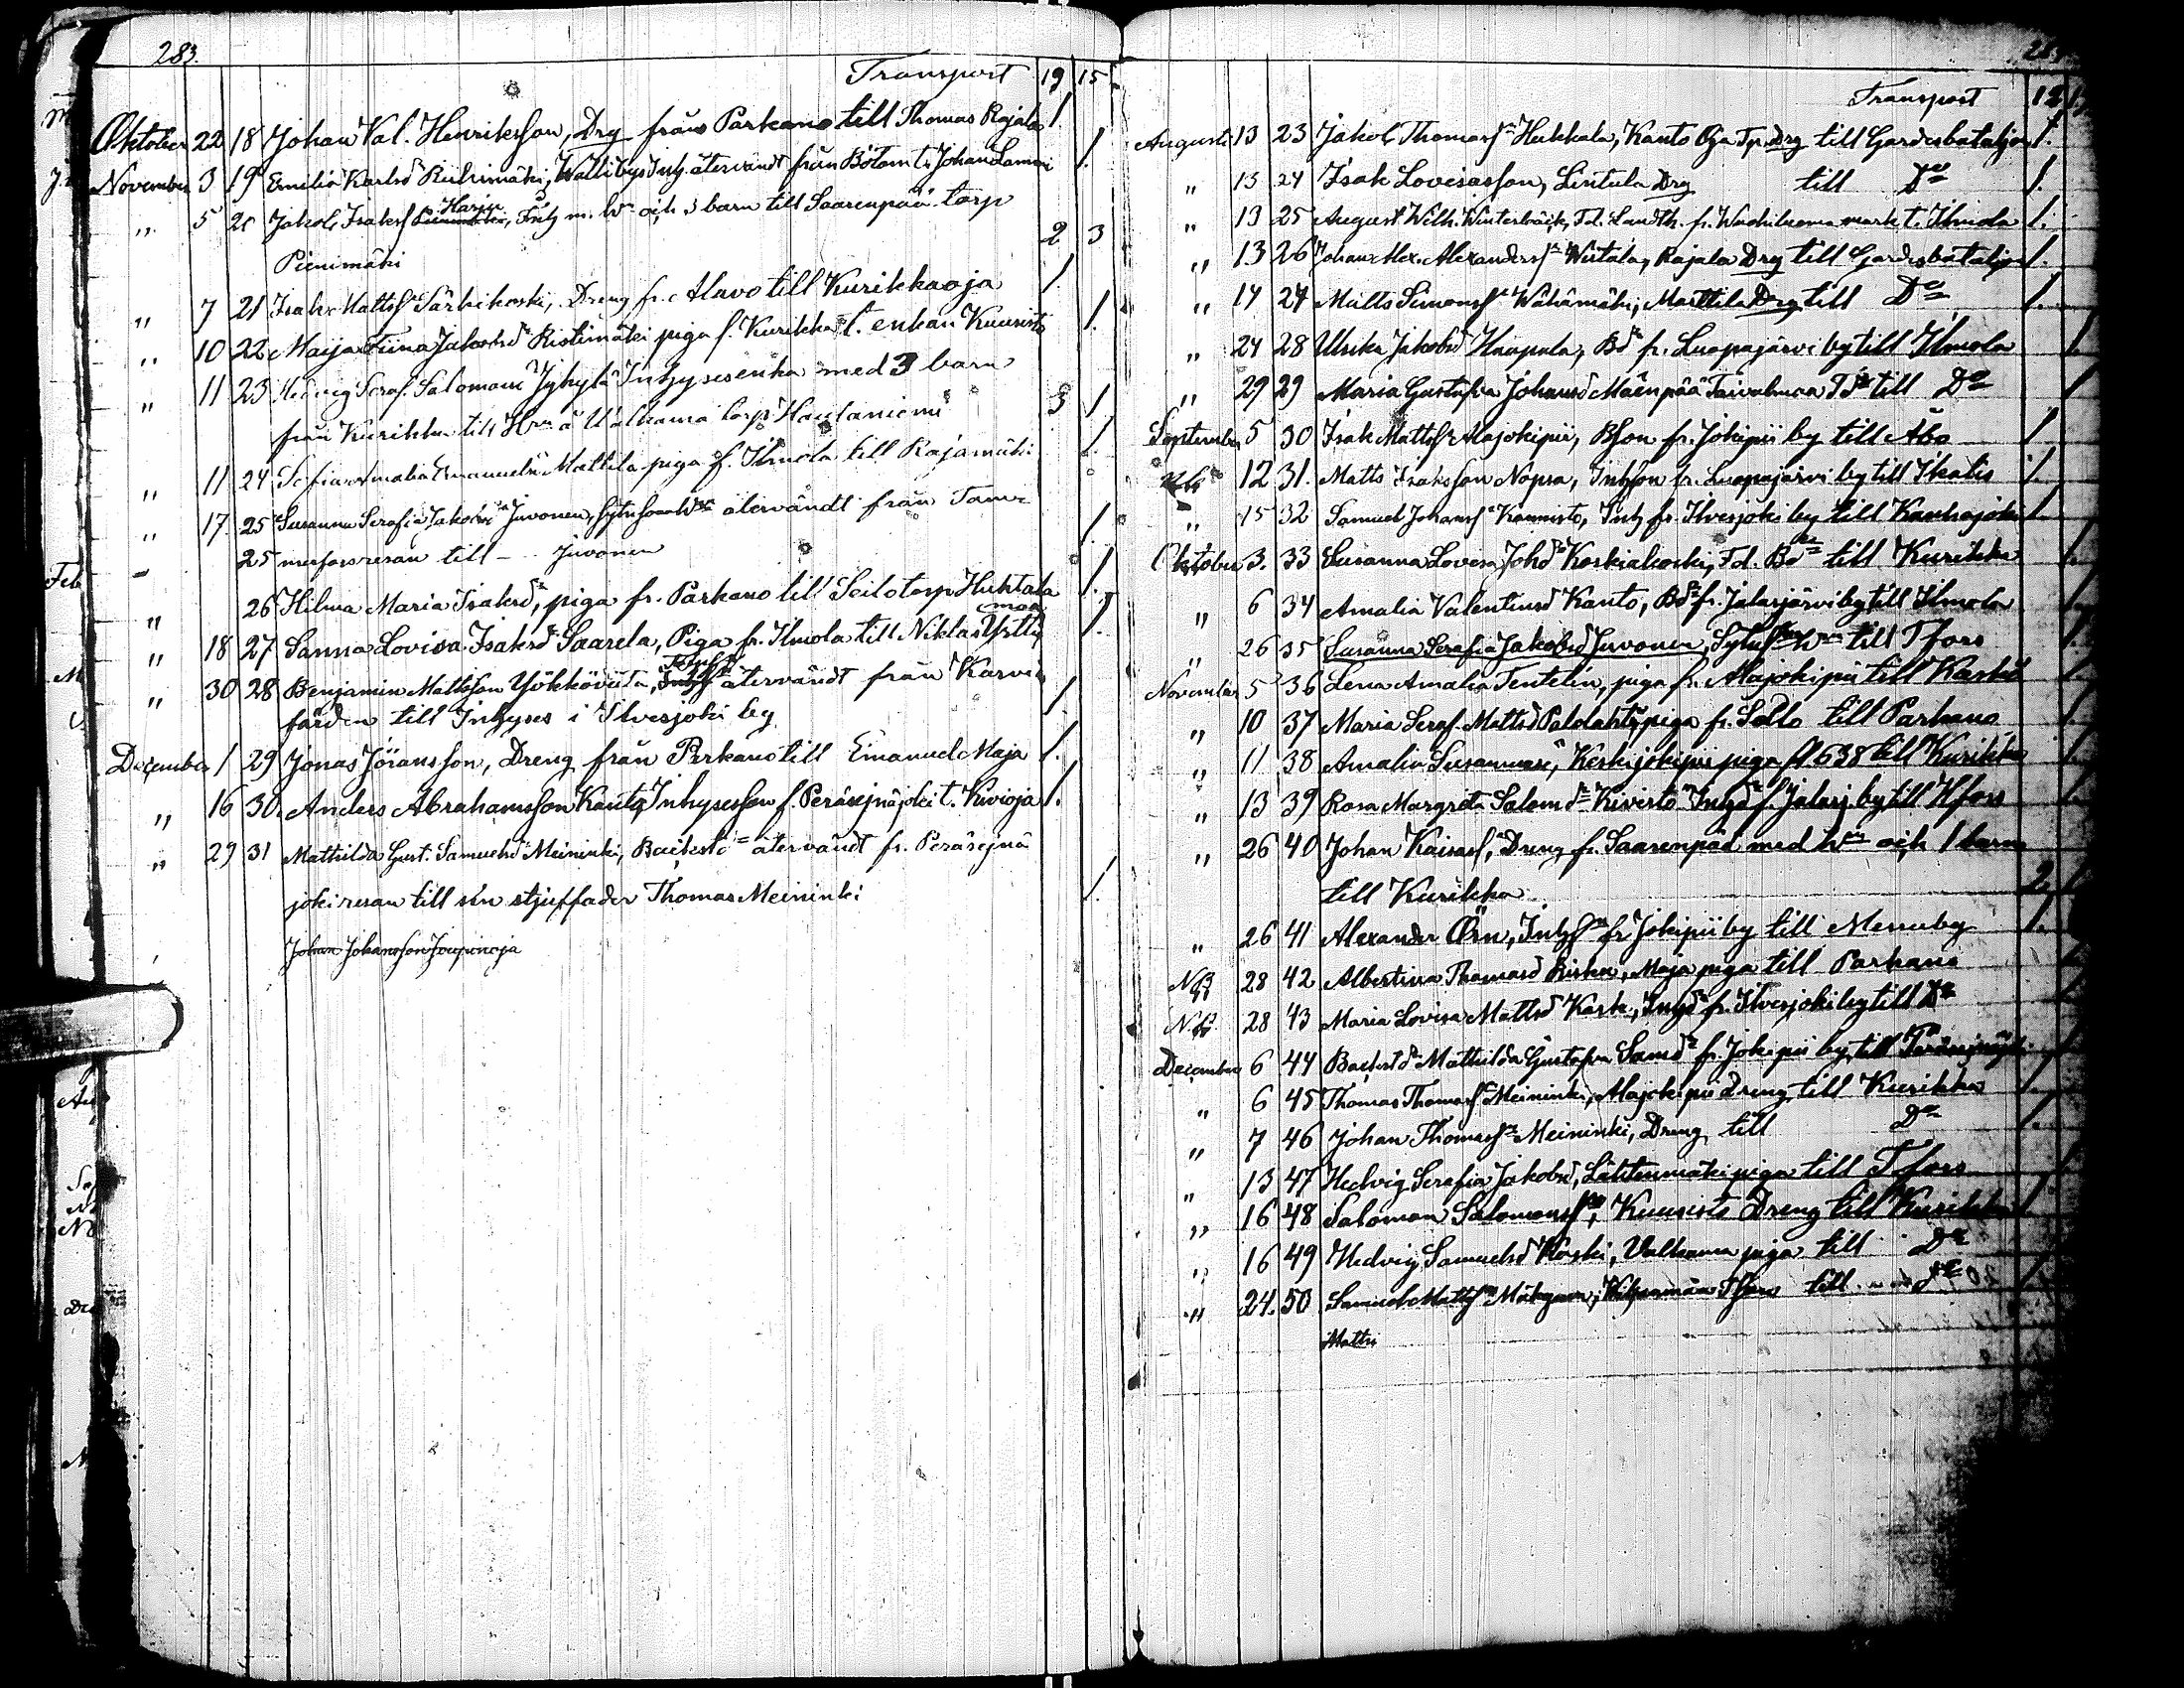 283.
Transport 19 15
Oktober 22 18 Johan Val. Henriksson, Drg från Parkano till Thomas Rajala 1
November 3 19 Emilia Karlsd Riihimäki, Wallibys Inh återvändt från Bötom t. Johan Lammi 1.
" 5 20 Jakob Isakss Harju, Inh m. h. och 3 barn till Saarenpää torp
Pienimäki 2 3
" 7 21 Isak Mattss Särkikoski, Dreng fr. Alavo till Kurikkaoja 1
" 10 22 Maija Tiina Jakobsd Ristimäki piga f. Kurikka t. enkan Kuusisto 1.
" 11 23 Hedvig Seraf. Salomoni Jyhylä Inhysesenka med 3 barn
från Kurikka till å Valkama torp Hautaniemi 3 1
" 11 24 Sofia Amalia Emanuelsd Mattila piga f. Ilmola till Rajamäki 1.
" 17. 25 Susanna Serafia Jakobsd Juvonen, återvändt från Tam-
25 merforsresan till - Juvonen 1.
" 26 Hilma Maria Isaksd, piga fr. Parkano till Seilo torp Huhtala 1.
maa
" 18 27 Sanna Lovisa Isaksd Saarela, Piga fr. Ilmola till Niklas Yrttiy 1.
" 30 28 Benjamin Mattsson Yökköviita, återvändt från Karvia
färden till Inhyses i Ilvesjoki by 1
December 1 29 Jonas Jöransson, Dreng från Parkano till Emanuel Maja 1.
" 16 30. Anders Abrahamsson Kanto, Inhysesson f. Peräsejnäjoki t. Kivioja 1.
" 29 31 Mathilda Gust. Samuelsd Meininki, Backst d återvändt fr. Peräsejnä
joki resan till sin stjuffader Thomas Meininki 1.
Johan Johansson Joupinoja
Transport 12
Augusti 13 23 Jakob Thomass Hukkala, Kanto Oja Tp. Drg till Gardesbataljon 1.
" 13 24 Isak Lovisasson, Lintula Drg till Do 1.
" 13 25 August Wilh. Winterbäck, Fd. fr. mark t. Ilmola 1.
" 13 26 Johan Alex. Alexanders Wirtala, Rajala Drg till Gardesbataljon 1.
" 14 27 Matts Simonss Wähämäki, Marttila Drg till Do 1.
" 24 28 Ulrika Jakobsd Haapala, Bd fr. Luopajärvi by till Ilmola 1.
" 29 29 Maria Gustafva Johansd Mäenpää Taivalmaa Td till Do 1
September 5 30 Isak Mattss Alajokipii, Bson fr. Jokipii by till Åbo 1
12 31. Matts Isaksson Nopsa, Inhson fr. Luopajärvi by till Ikalis 1.
" 15 32 Samuel Johanss Kannisto, Inh fr. Ilvesjoki by till Kauhajoki 1
Oktober 3. 33 Susanna Lovisa Johsd Koskiakoski, Fd. till Kurikka
" 6 34 Amalia Valentinsd Kanto, Bd fr. Jalasjärvi by till Ilmola
" 26 35 Susanna Serafia Jakobsd Juvonen, till Tfors 1.
November 5 36 Lena Amalia Tentelin, piga fr. Alajokipii till
" 10 37 Maria Seraf. Mattsd piga fr. till Parkano 1.
" 11 38 Amalia Keskijokipii piga 638 till Kurikka 1.
" 13 39 Rosa Margreta Salomd Kivistö Inhd f. Jalasj. by till Hfors
" 26 40 Johan Kaisass, Dreng fr. Saarenpää med h och 1 barn
till Kurikka 2
" 26 41 Alexander Örn, Inhs fr. Jokipii by till Messuby 1.
NB 28 42 Albertina Thomasd Risku, Maja piga till Parkano
NB. 28 43 Maria Lovisa Mattsd Inhd fr. Ilvesjoki by till Do
December 6 44 Backstd Mathilda Gustafva Samd fr. Jokipii by till
" 6 45 Thomas Thomass Meininki, Alajokipii dreng till Kurikka 1.
" 7 46 Johan Thomass Meininki, Dreng till Do 1.
" 13 47 Hedvig Serafia Jakobsd, Lähteenmäki piga till Tfors
" 16 48 Salomon Salomonss, Kuusisto Dreng till Kurikka 1
" 16 49 Hedvig Samuelsd Koski, Valkama piga till Do
" 24. 50 Samuel Mattss till
Matts